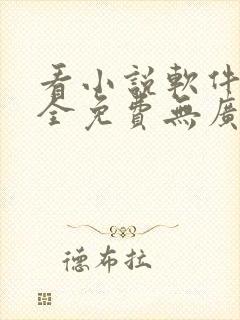 看小説軟件
全免費無廣
德布拉